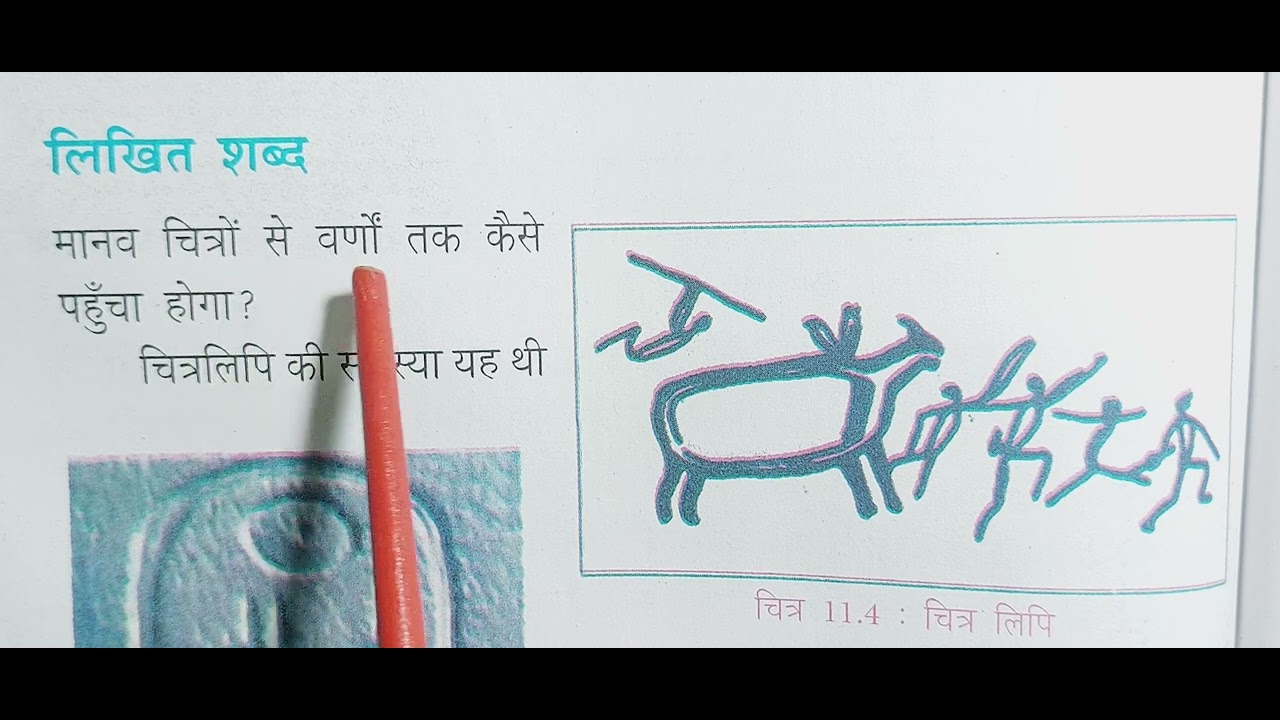 लिखित शब्द
मानव चित्रों से वर्णों तक कैसे
पहुँचा होगा?
चित्रलिपि की यह थी
चित्र 11.4 : चित्र लिपि